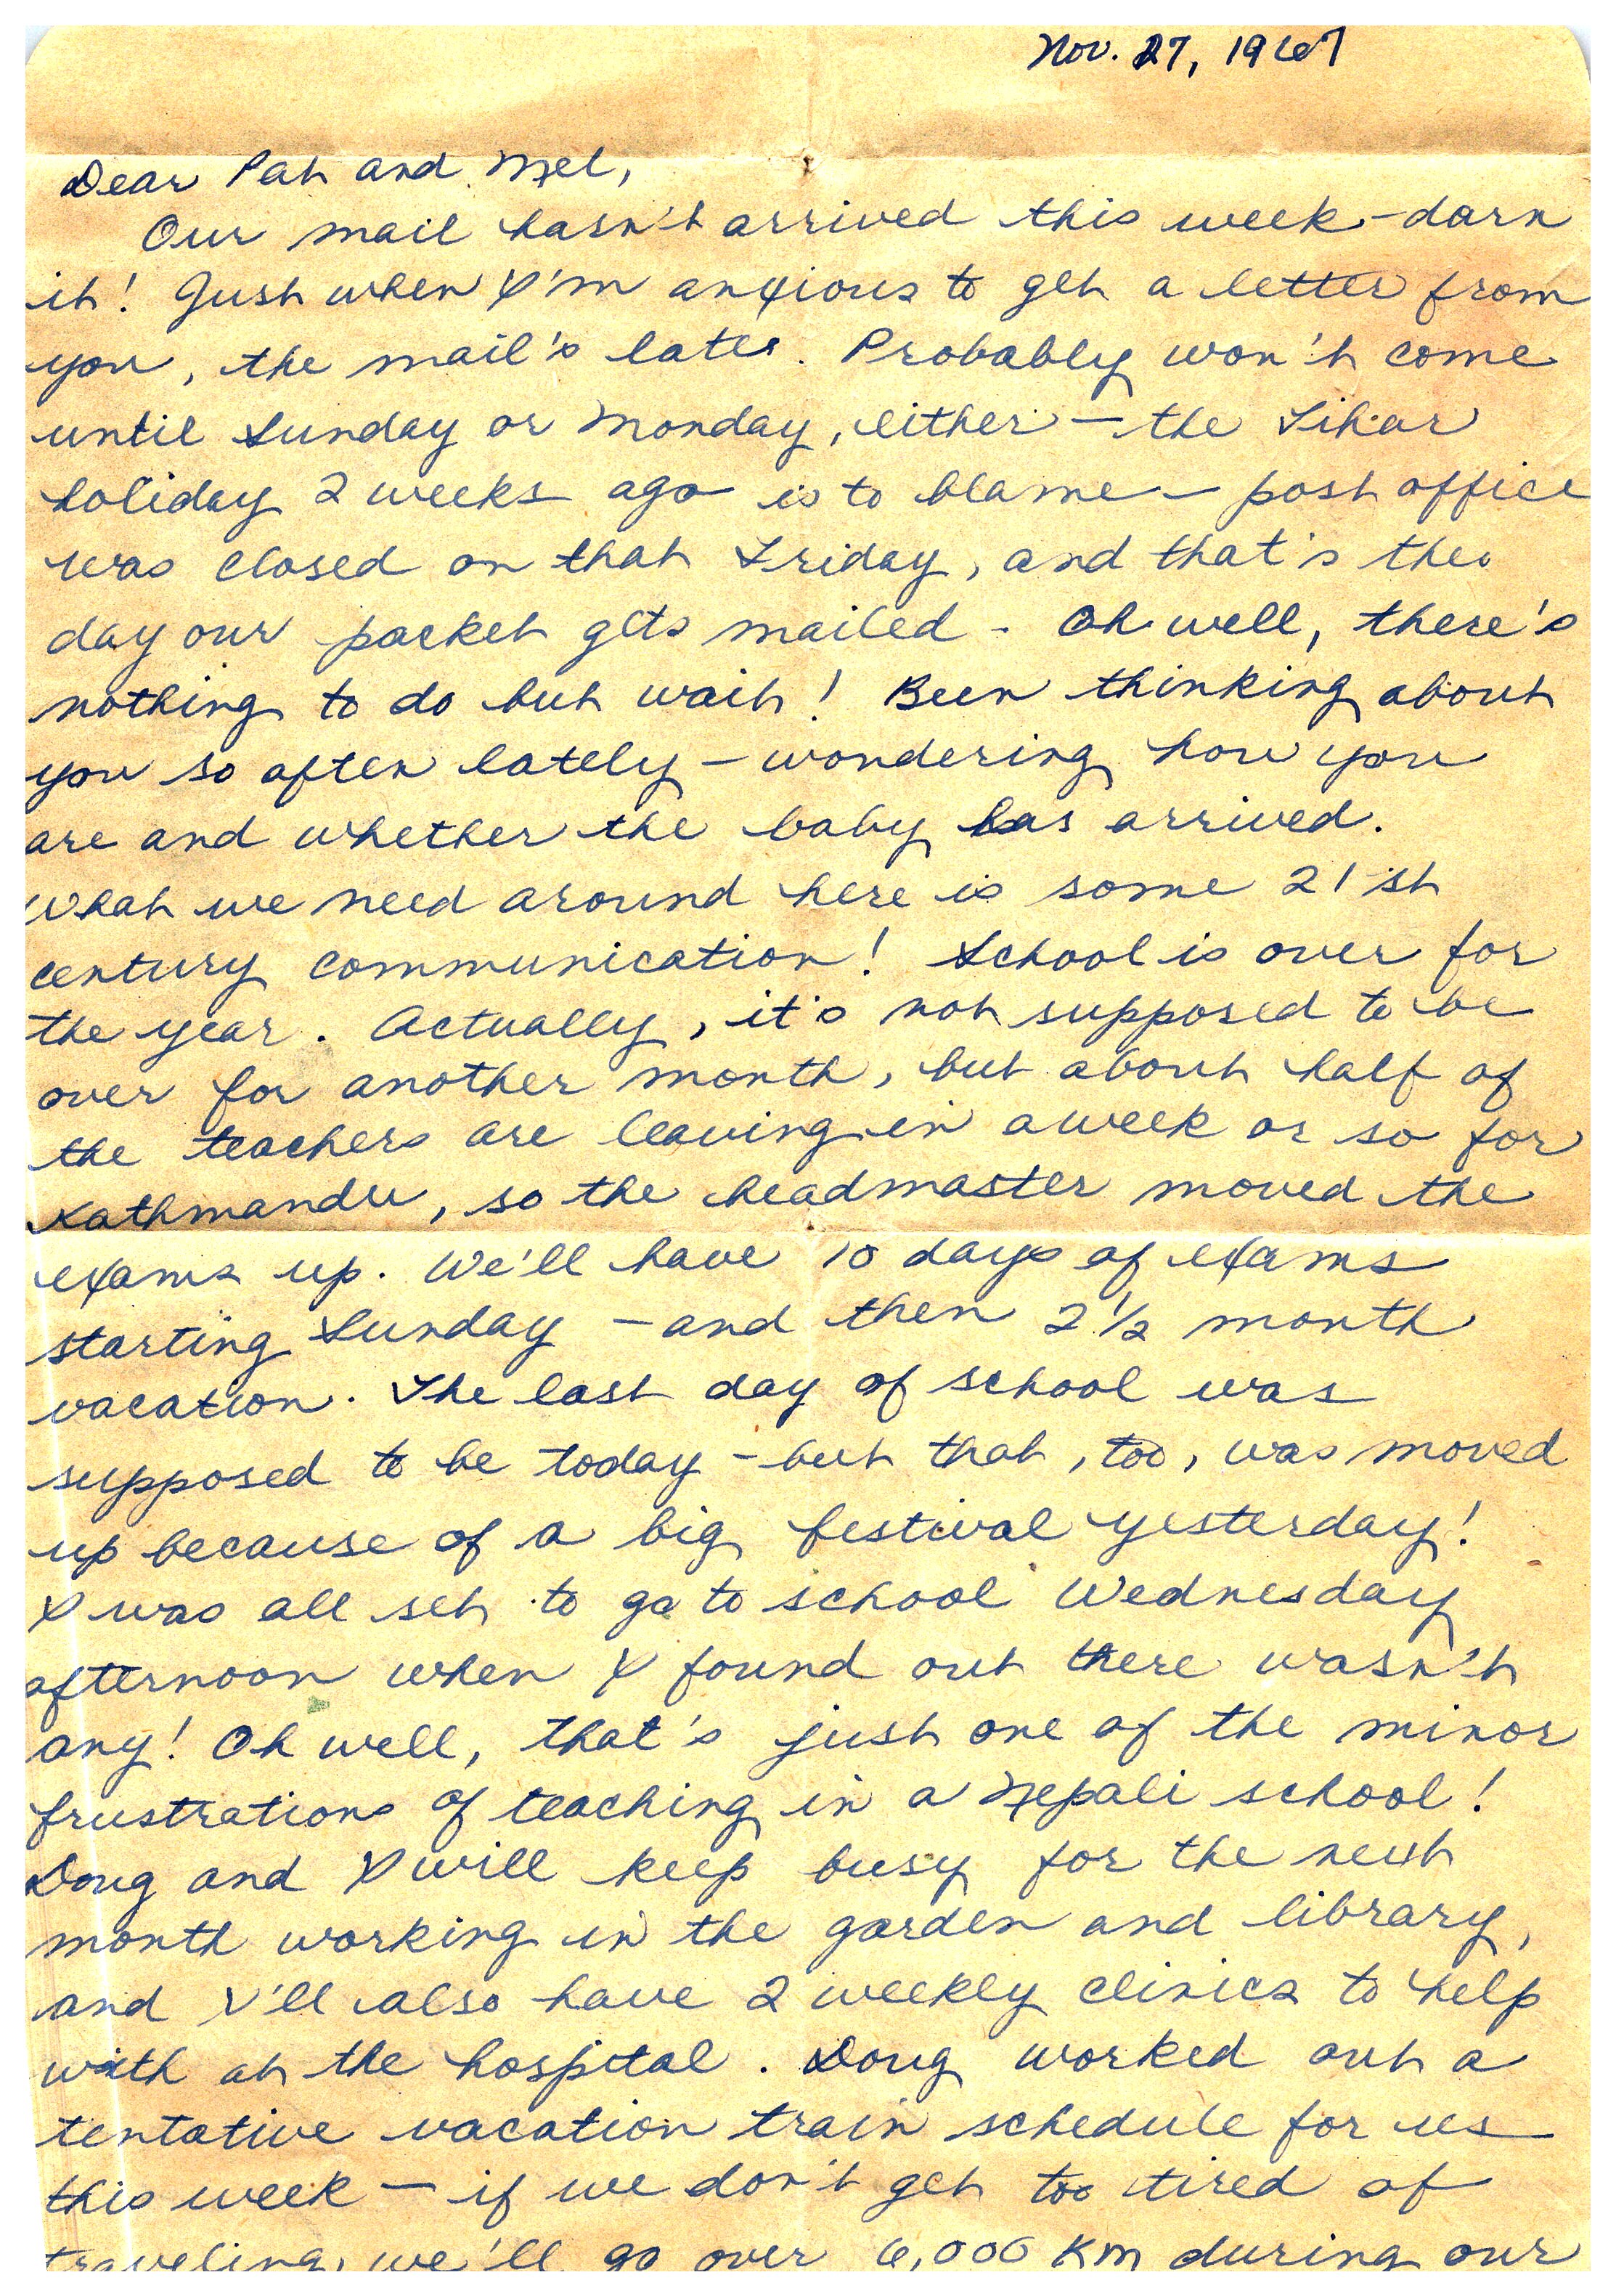 Nov. 27, 1967
Dear Pat and Mel,
Our mail hasn't arrived this week - darn
it! Just when I'm anxious to get a letter from
you, the mail's late. Probably won't come
until Sunday or Monday, either — the Tihar
holiday 2 weeks ago is to blame — post office
was closed on that Friday, and that's the
day our packet gets mailed - Oh well, there's
nothing to do but wait! Been thinking about
you so often lately - wondering how you
are and whether the baby has arrived.
What we need around here is some 21'st
century communication! School is over for
the year. Actually, it's not supposed to be
over for another month, but about half of
the teachers are leaving in a week or so for
Kathmandu, so the headmaster moved the
exams up. We'll have 10 days of exams
starting Sunday - and then 2 1/2 month
vacation. The last day of school was
supposed to be today - but that, too, was moved
up because of a big festival yesterday!
I was all set to go to school Wednesday
afternoon when I found out there wasn't
any! Oh well, that's just one of the minor
frustrations of teaching in a Nepali school!
Doug and I will keep busy for the next
month working in the garden and library,
and I'll also have 2 weekly clinics to help
with at the hospital. Doug worked out a
tentative vacation train schedule for us
this week — if we don't get too tired of
traveling, we'll go over 6,000 Km during our